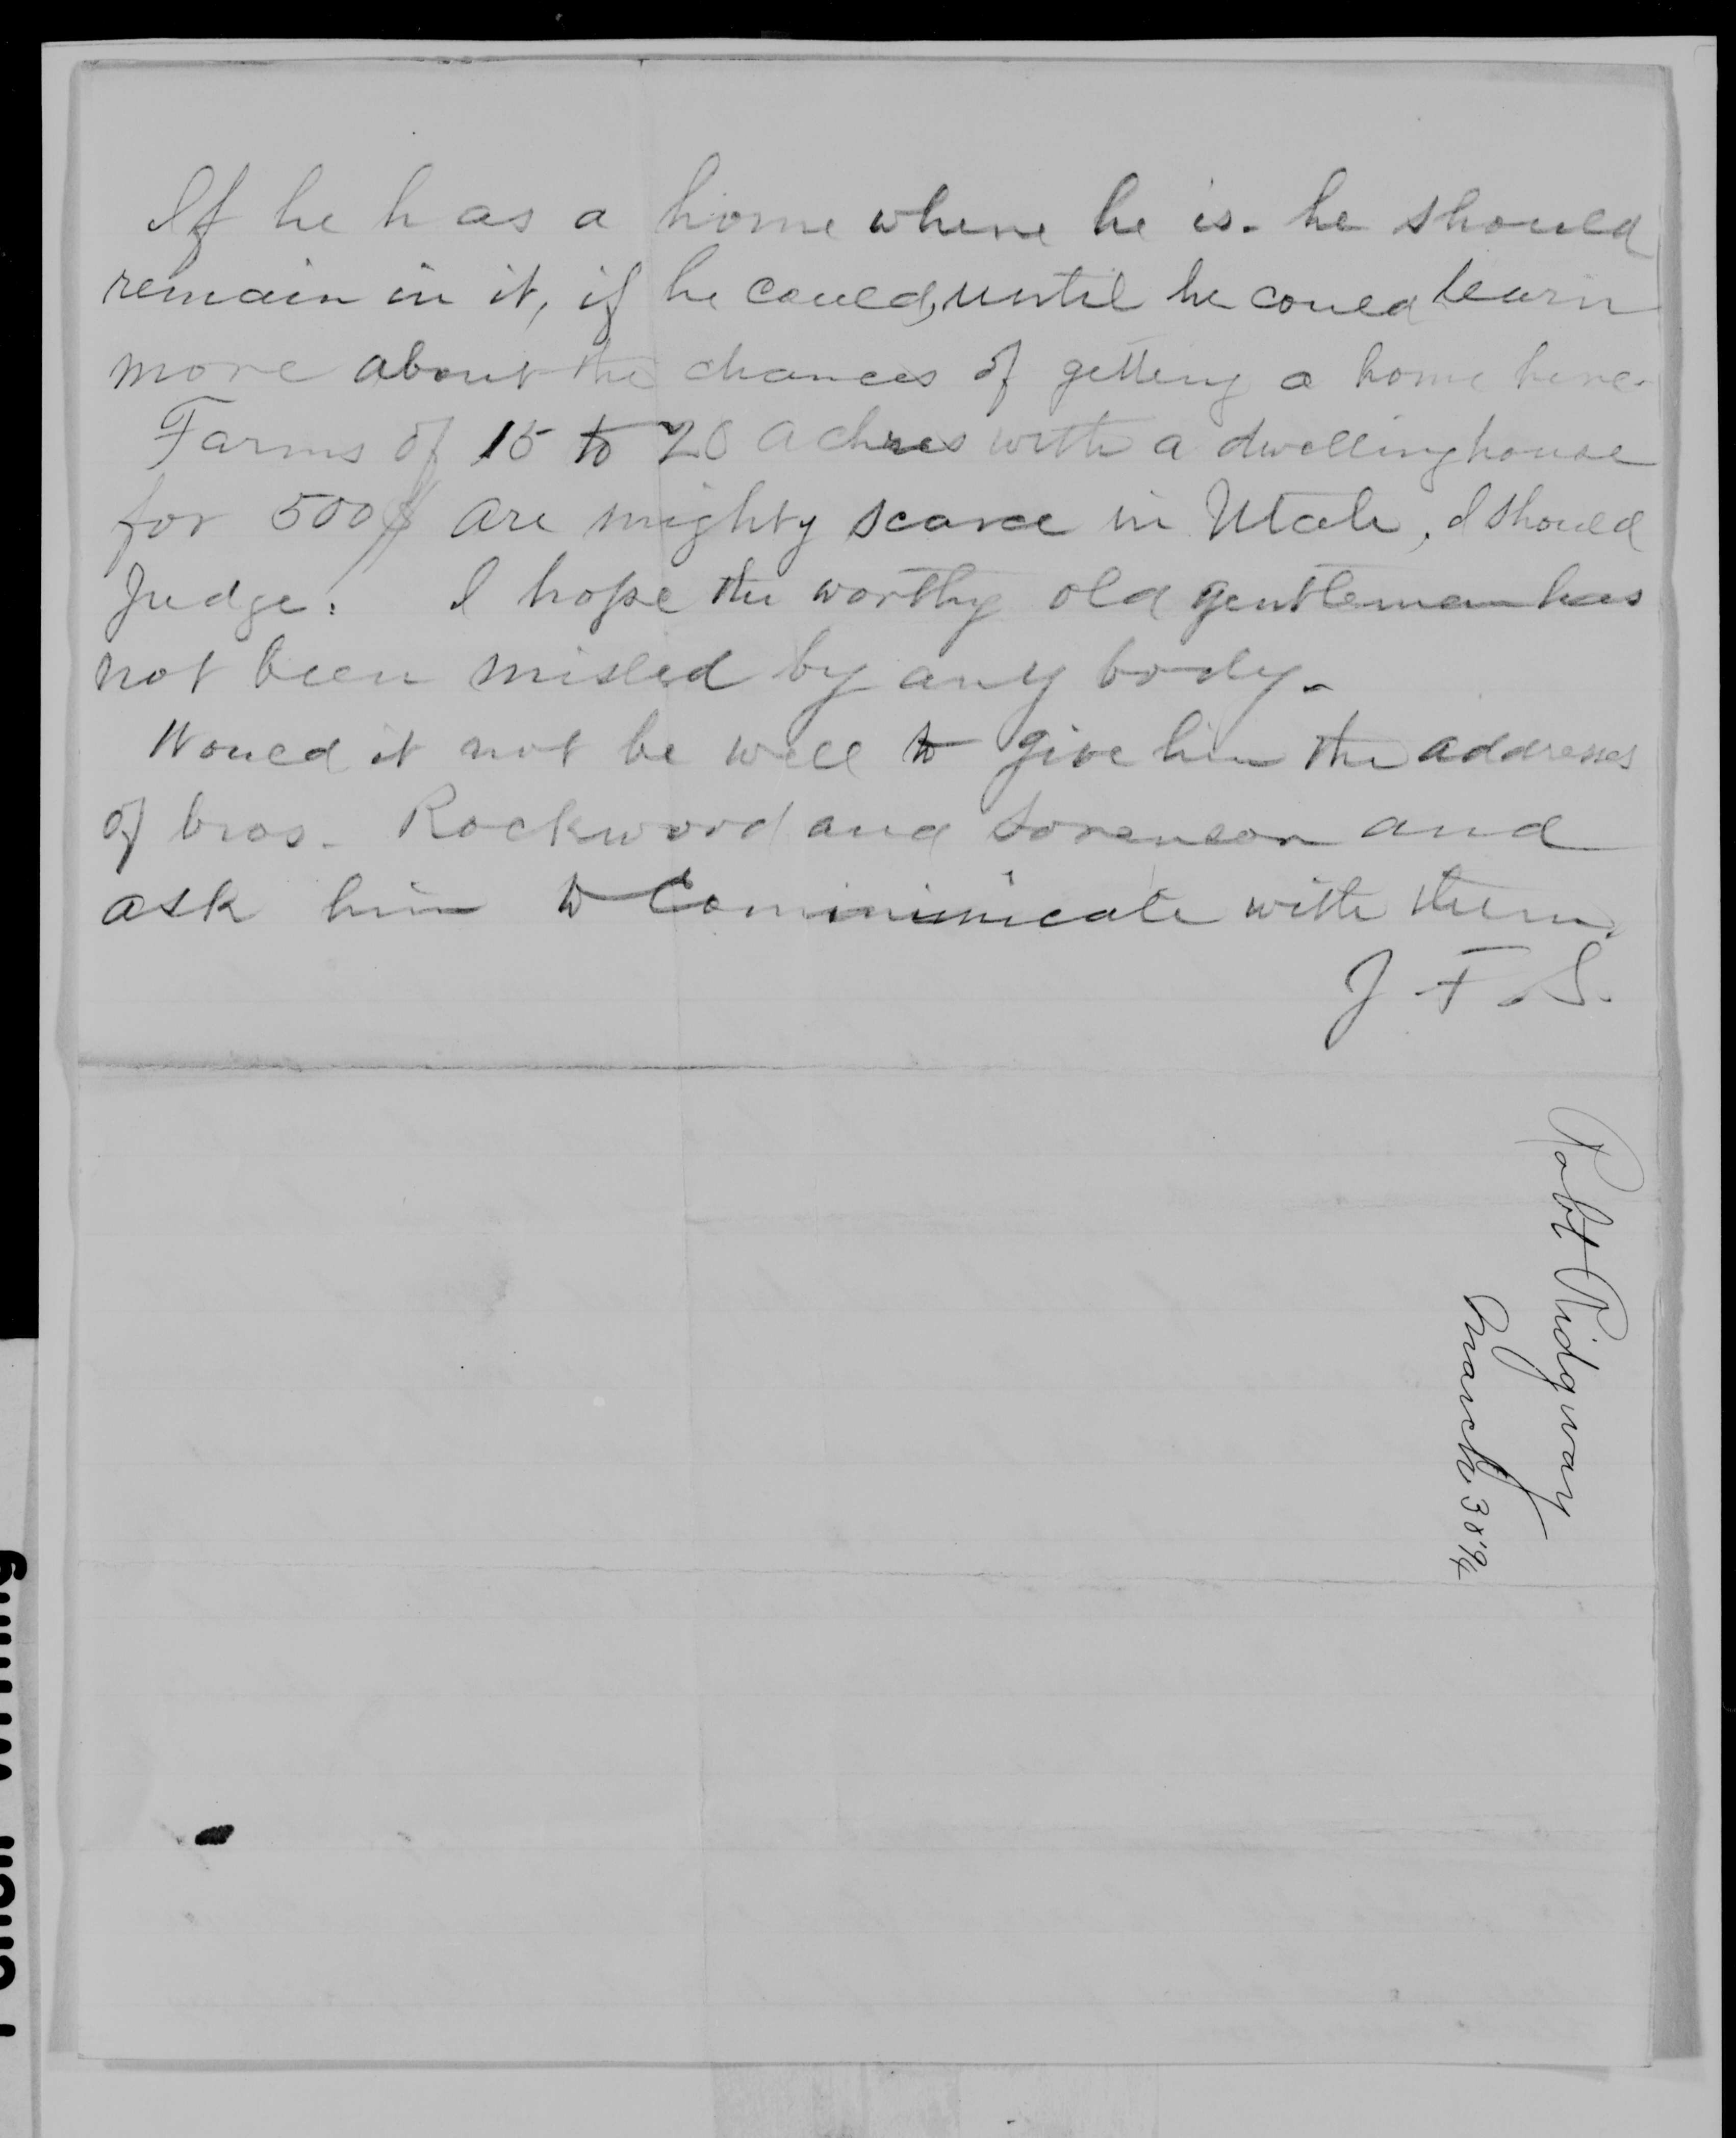 If he has a home where he is. he should
remain in it, if he could, until he could learn
more about the chances of getting a home here.
Farms of 15 to 20 achres with a dwelling house
for 500$ are mighty scarce in Utah, I should
Judge. I hope the worthy old gentleman has
not been misled by any body.
Would it not be well to give him the addresses
of bros. Rockwood and Sorenson and
ask him to Comminunicate with them.
J F. S.
Robt Ridgway
March 30 '94